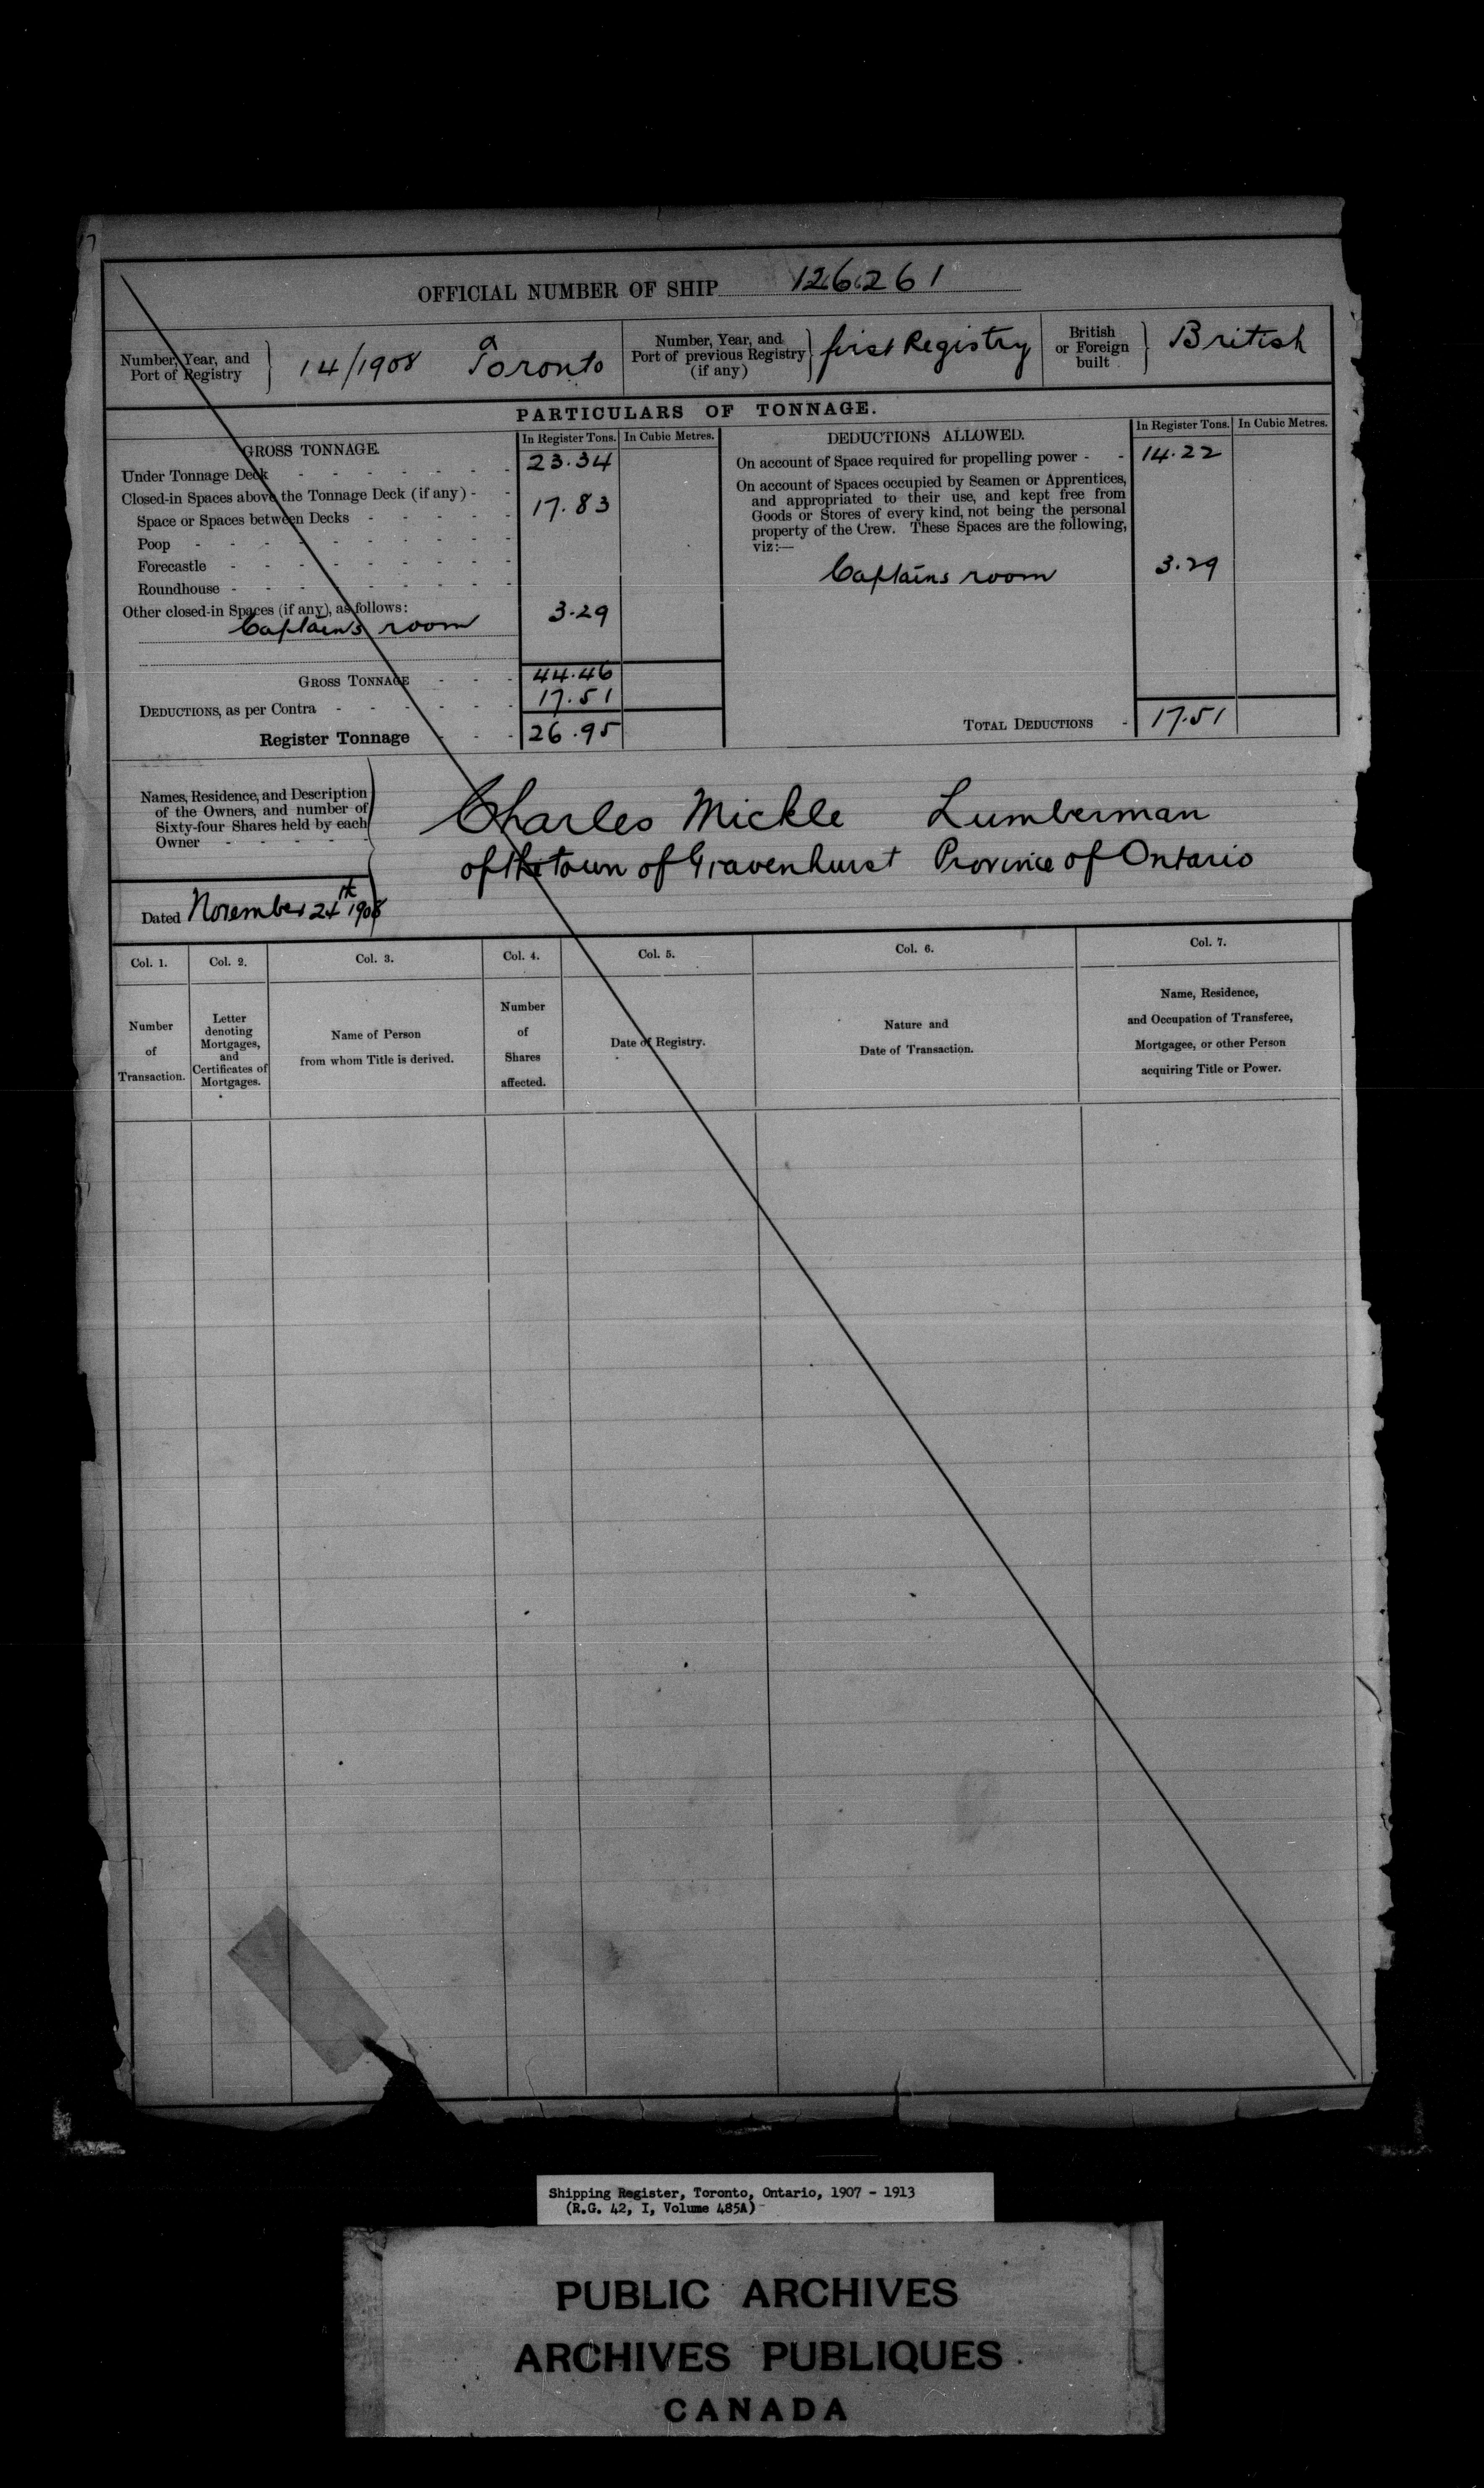 OFFICIAL NUMBER OF SHIP 126261
Number, Year, and
Port of Registry
14/1908 Toronto
Number, Year, and
Port of previous Registry
(if any)
first Registry
British
or Foreign
built
British
PARTICULARS OF TONNAGE.
GROSS TONNAGE.
In Register Tons. In Cubic Metres.
Under Tonnage Deck - - - - - - - 23.34
Closed-in Spaces above the Tonnage Deck (if any) - -
Space or Spaces between Decks - - - - - 17.83
Poop - - - - - - - - - -
Forecastle - - - - - - - - -
Roundhouse - - - - - - - - -
Other closed-in Spaces (if any), as follows:
Captains room 3.29
GROSS TONNAGE - - - 44.46
DEDUCTIONS, as per Contra - - - - - - 17.51
Register Tonnage - - - 26.95
DEDUCTIONS ALLOWED.
In Register Tons. In Cubic Metres.
On account of Space required for propelling power - - 14.22
On account of Spaces occupied by Seamen or Apprentices,
and appropriated to their use, and kept free from
Goods or Stores of every kind, not being the personal
property of the Crew. These Spaces are the following,
viz:—
Captains room 3.29
TOTAL DEDUCTIONS - 17.51
Names, Residence, and Description
of the Owners, and number of
Sixty-four Shares held by each
Owner - - - - -
Charles Mickle Lumberman
of the town of Gravenhurst Province of Ontario
Dated November 24th 1908
Col. 1. Col. 2. Col. 3. Col. 4. Col. 5. Col. 6. Col. 7.
Number
of
Transaction.
Letter
denoting
Mortgages,
and
Certificates of
Mortgages.
Name of Person
from whom Title is derived.
Number
of
Shares
affected.
Date of Registry.
Nature and
Date of Transaction.
Name, Residence,
and Occupation of Transferee,
Mortgagee, or other Person
acquiring Title or Power.
Shipping Register, Toronto, Ontario, 1907 - 1913
(R.G. 42, I, Volume 485A)
PUBLIC ARCHIVES
ARCHIVES PUBLIQUES
CANADA